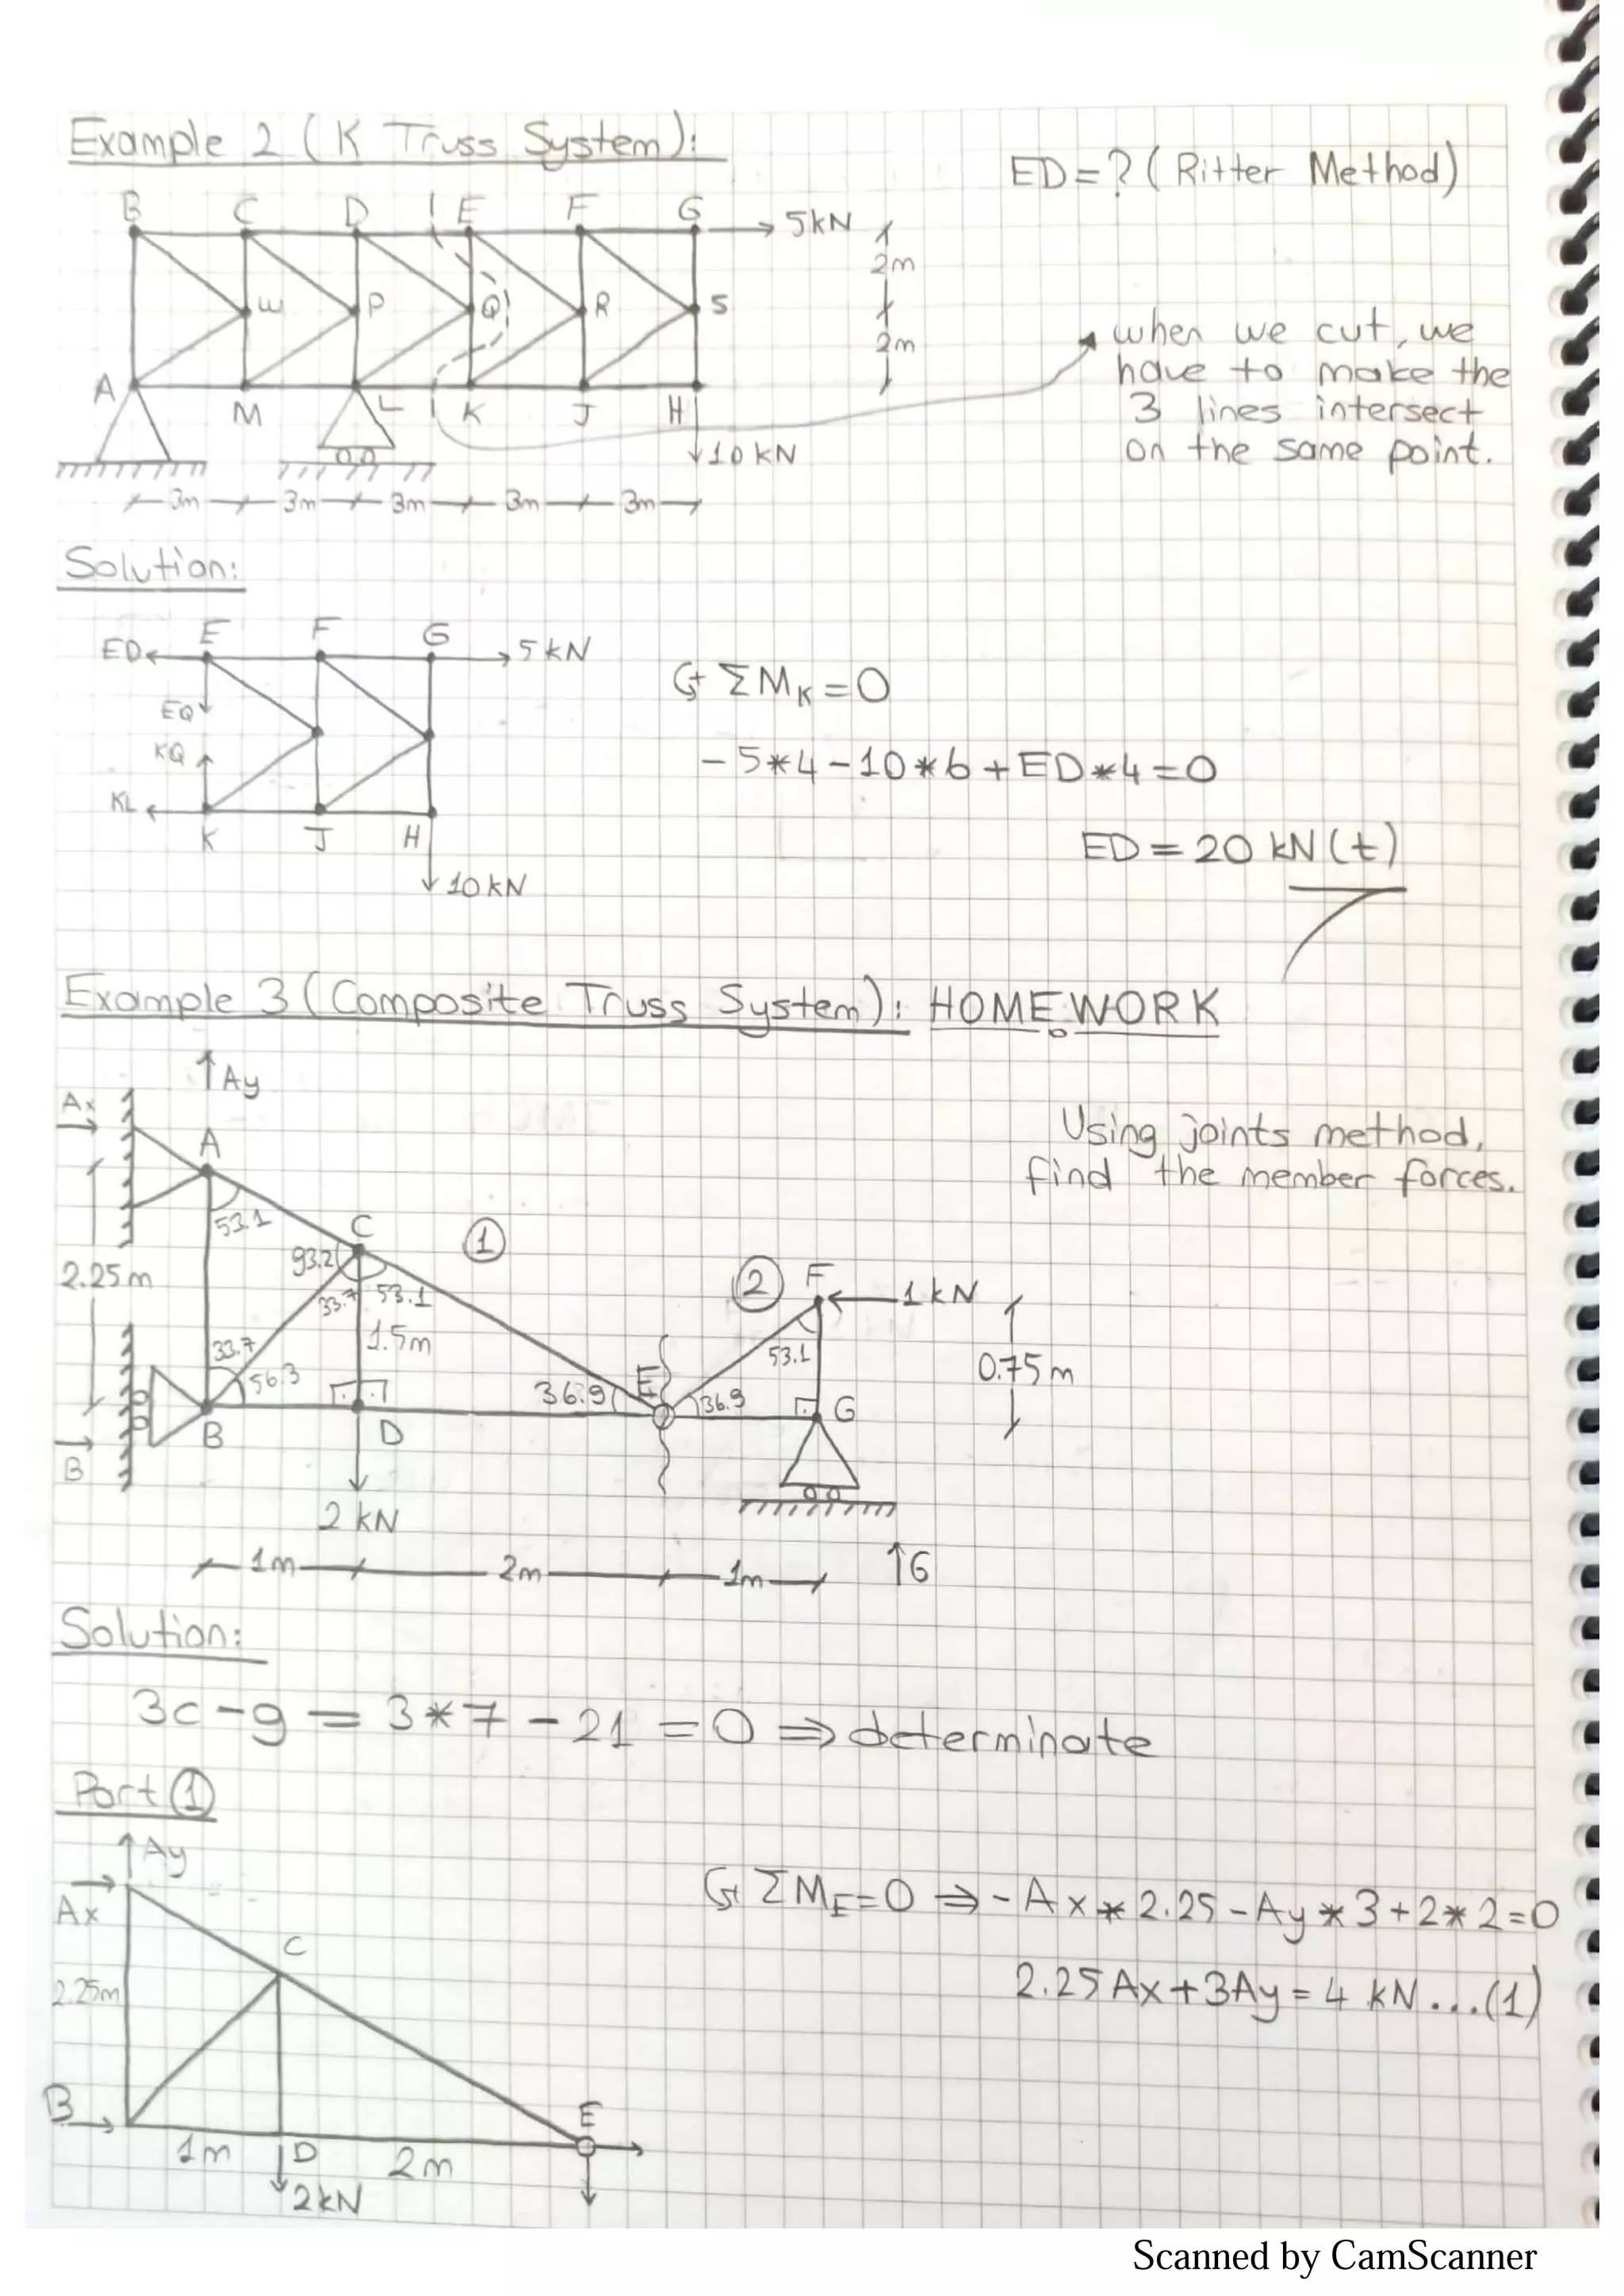 Example 2 (K Truss System):
ED=? (Ritter Method)
B C D E F G 5kN
2m
W P Q R S
2m
when we cut, we
have to make the
3 lines intersect
on the same point.
A M L K J H
10kN
3m 3m 3m 3m 3m
Solution:
ED E F G 5kN
EQ
KQ
KL K J H
10kN
ΣMK=0
-5*4-10*6+ED*4=0
ED=20 kN(t)
Example 3 (Composite Truss System): HOMEWORK
Ay
Ax
A
Using joints method,
find the member forces.
53.1
C
93.2
1
2.25m
33.7 53.1
2 F 1kN
1.5m
33.7
53.1
0.75m
56.3
36.9 E 36.9
G
B D
B
2 kN
1m 2m 1m
G
Solution:
3c-g=3*7-21=0⇒determinate
Part 1
Ay
Ax
ΣME=0⇒-Ax*2.25-Ay*3+2*2=0
C
2.25m
2.25Ax+3Ay=4 kN...(1)
B
E
1m D 2m
2kN
Scanned by CamScanner